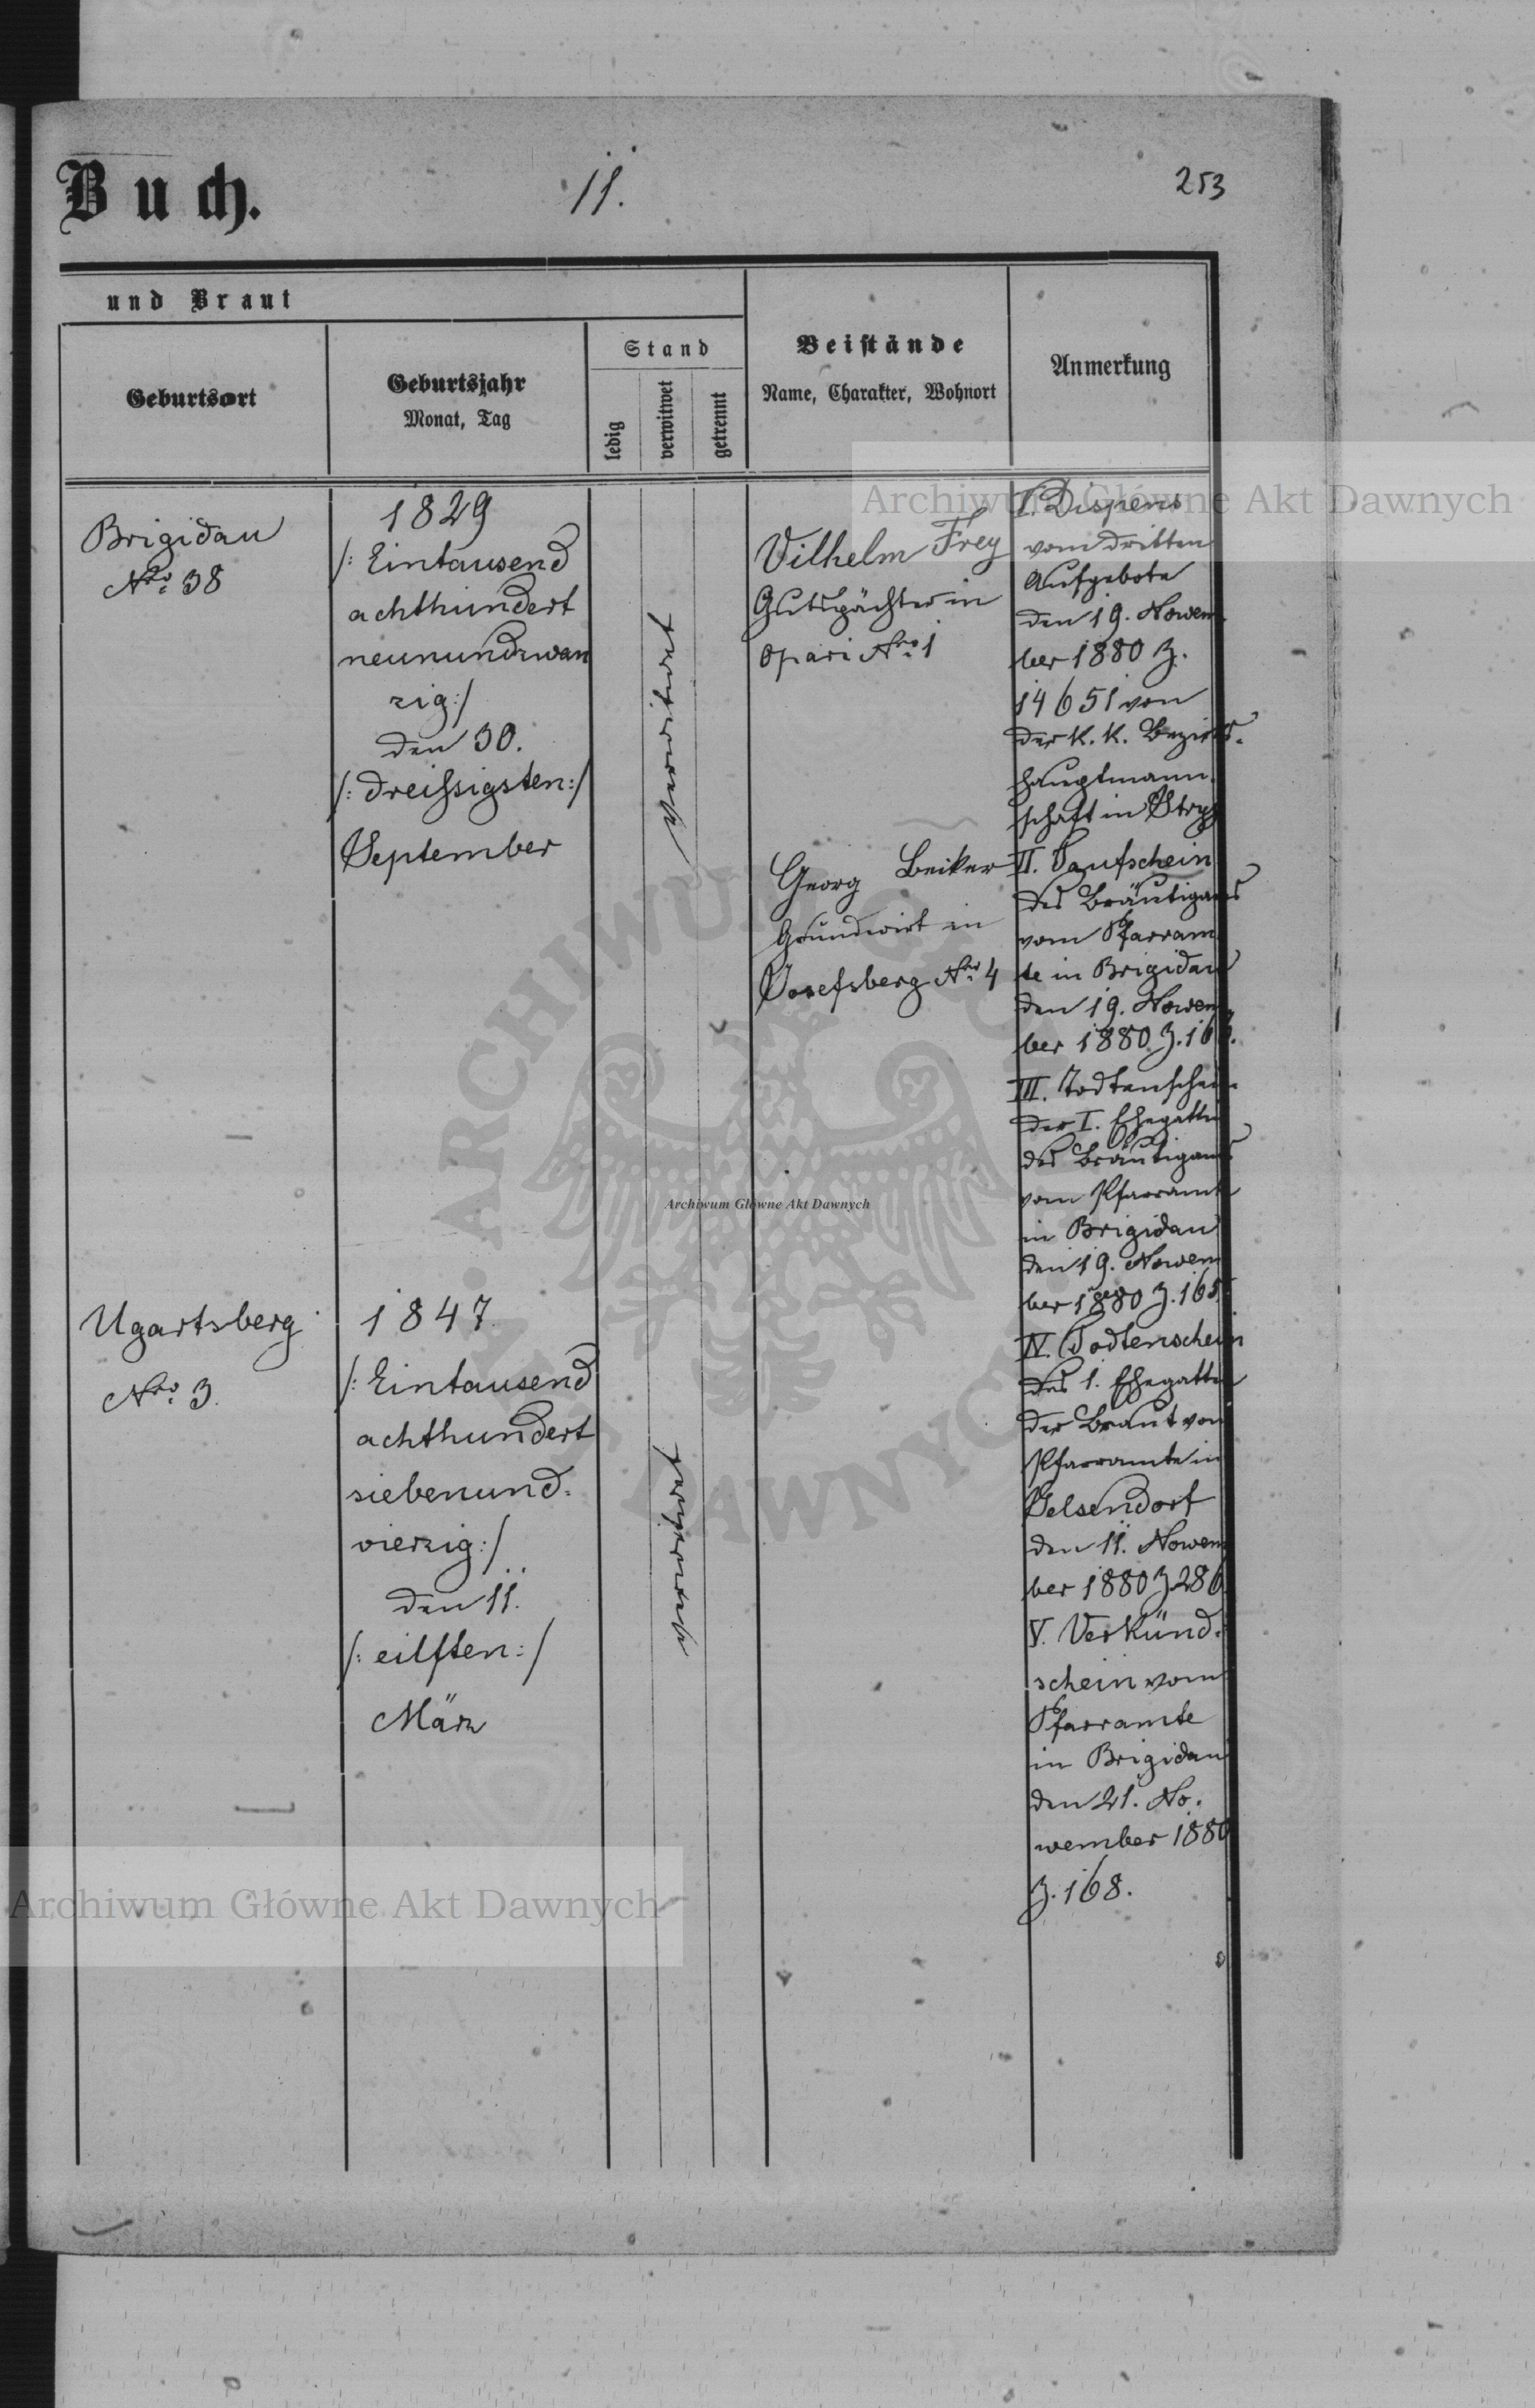 Buch.
11.
253
und Braut
Geburtsort
Geburtsjahr
Monat, Tag
Stand
ledig
verwitwet
getrennt
Beistände
Name, Charakter, Wohnort
Anmerkung
Brigidau
Nro 38
1829
/: Eintausend
achthundert
neunundzwan
zig :/
den 30.
/: dreißigsten :/
September
verwitwet
Vilhelm Frey
Gutspächter in
Opari Nro 1
Georg Beiker
Grundwirt in
Josefsberg Nro 4
I. Dispens
vom dritten
Aufgebote
den 19. Nowem
ber 1880 Z.
14651 von
der K. K. Bezirks-
hauptmann-
schaft in Stryj
II. Taufschein
des Bräutigams
vom Pfarram
te in Brigidau
den 19. Nowem
ber 1880 Z.
III. Todtenschein
der I. Ehegattin
des Bräutigams
vom Pfarramte
in Brigidau
den 19. Nowem
ber 1880 Z. 165
IV. Todtenschein
des 1. Ehegatten
der Braut vom
Pfarramte in
Gelsendorf
den 11. Nowem
ber 1880 Z 286
V. Verkünd-
schein vom
Pfarramte
in Brigidau
den 21. No-
wember 1880
Z. 168.
Ugartsberg
Nro 3.
1847.
/: Eintausend
achthundert
siebenund-
vierzig :/
den 11.
/: eilften :/
März
verwitwet
Archiwum Główne Akt Dawnych
Archiwum Główne Akt Dawnych
Archiwum Główne Akt Dawnych